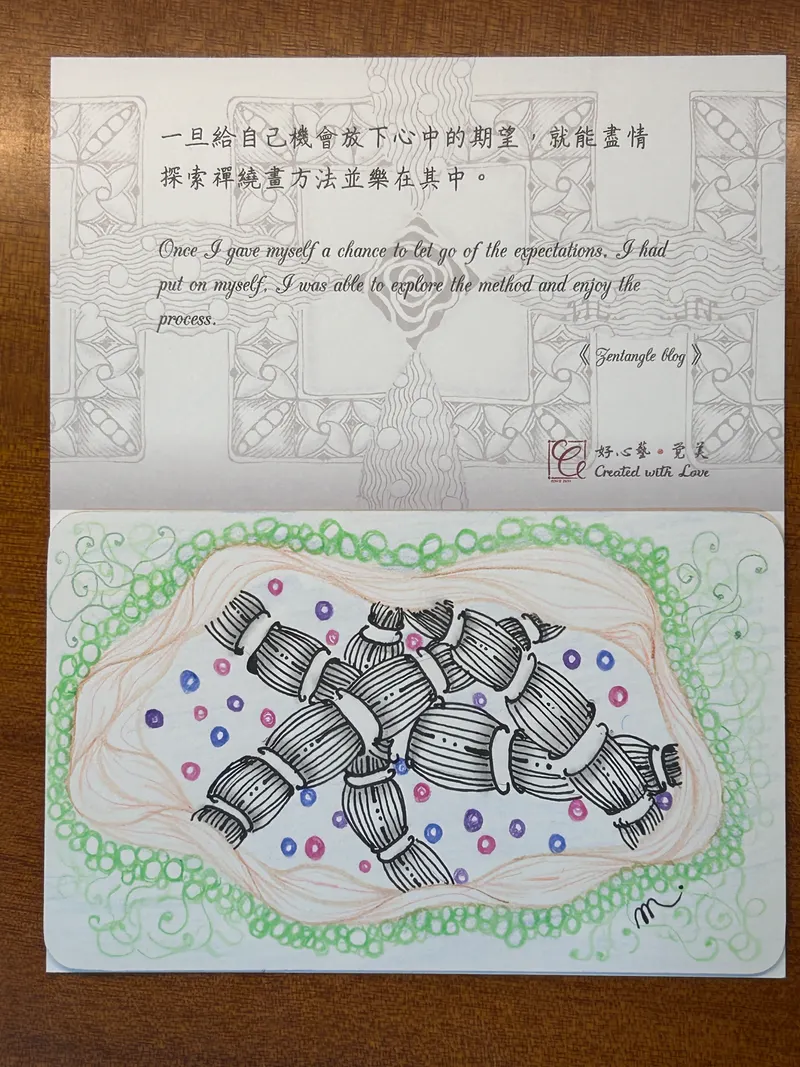 一旦給自己機會放下心中的期望，就能盡情
探索禪繞畫方法並樂在其中。
Once I gave myself a chance to let go of the expectations, I had
put on myself, I was able to explore the method and enjoy the
process.
《 Zentangle blog 》
好心藝•覓美
Created with Love
m